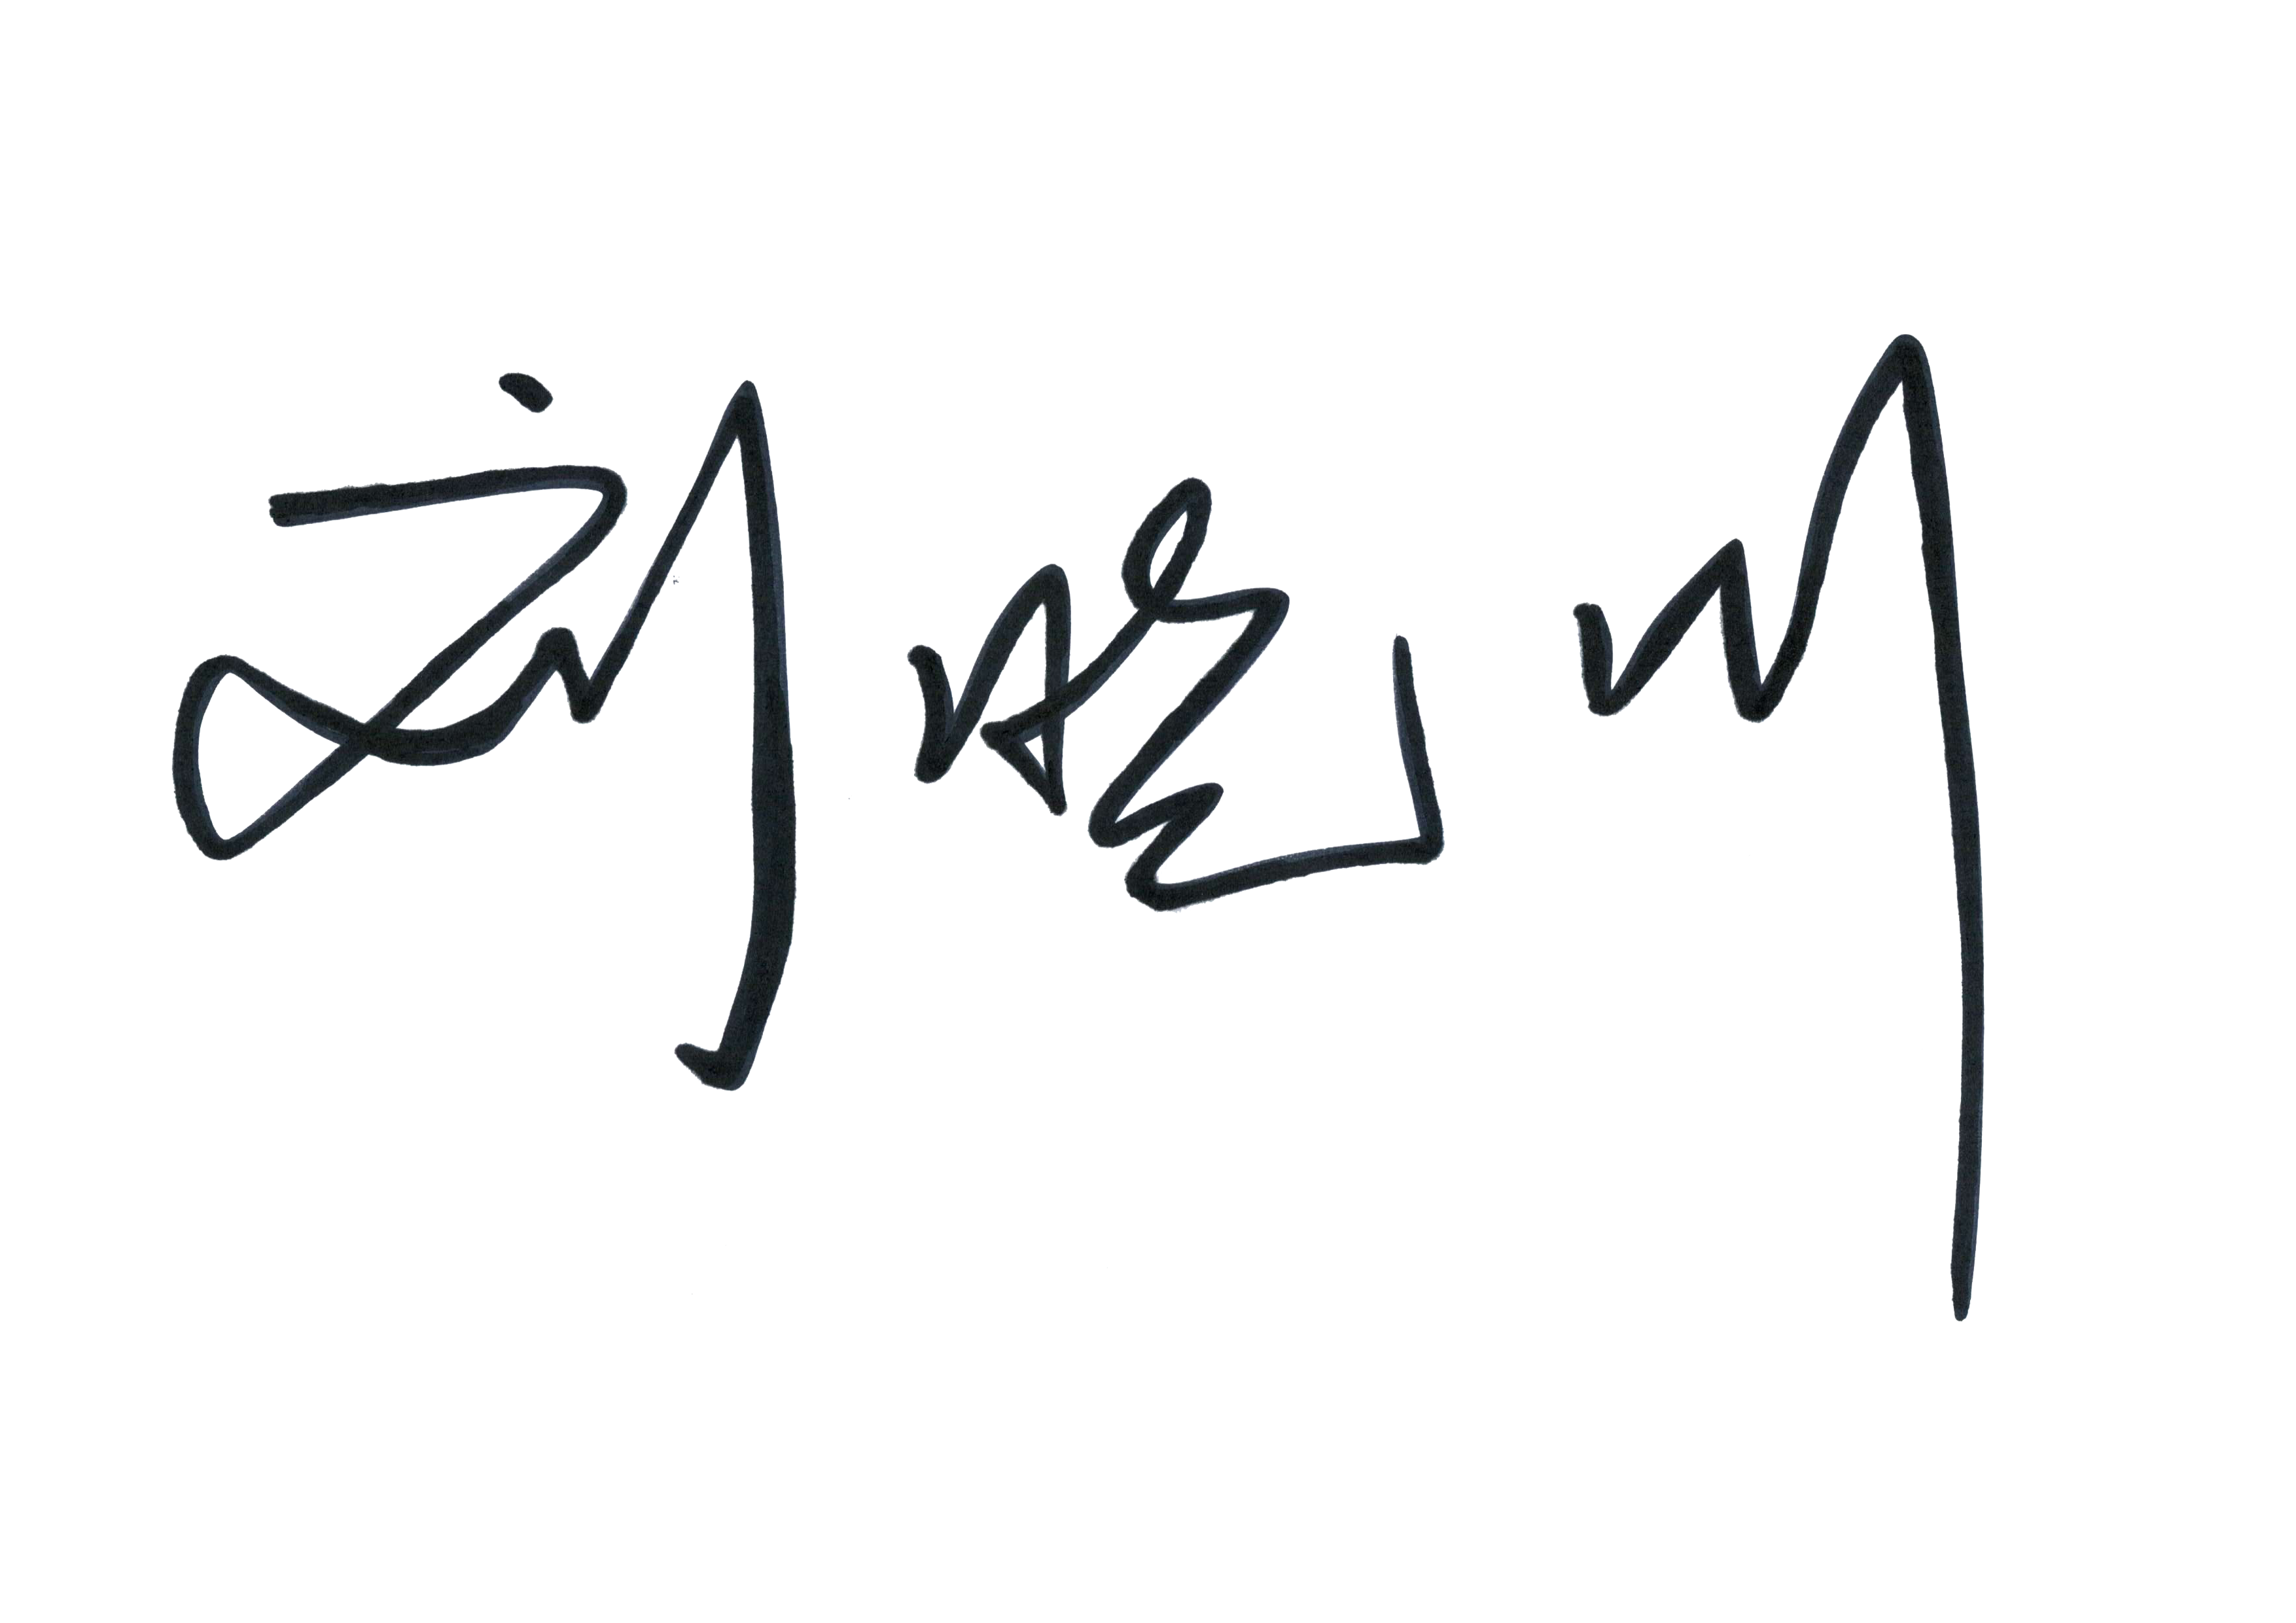 刘晓川